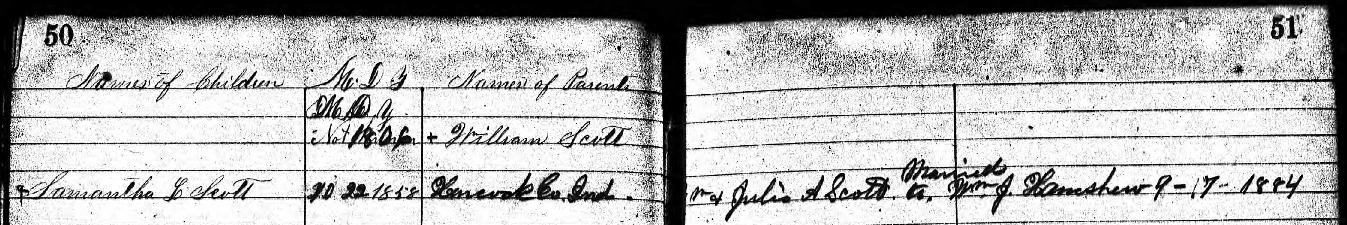 50
51
Names of Children M D Y Names of Parents
M D Y
+ William Scott
+ Samantha E Scott 10 22 1858 Hancock Co. Ind.
m + Julia A Scott. Married to. Wm J. Hamshew 9-17-1884